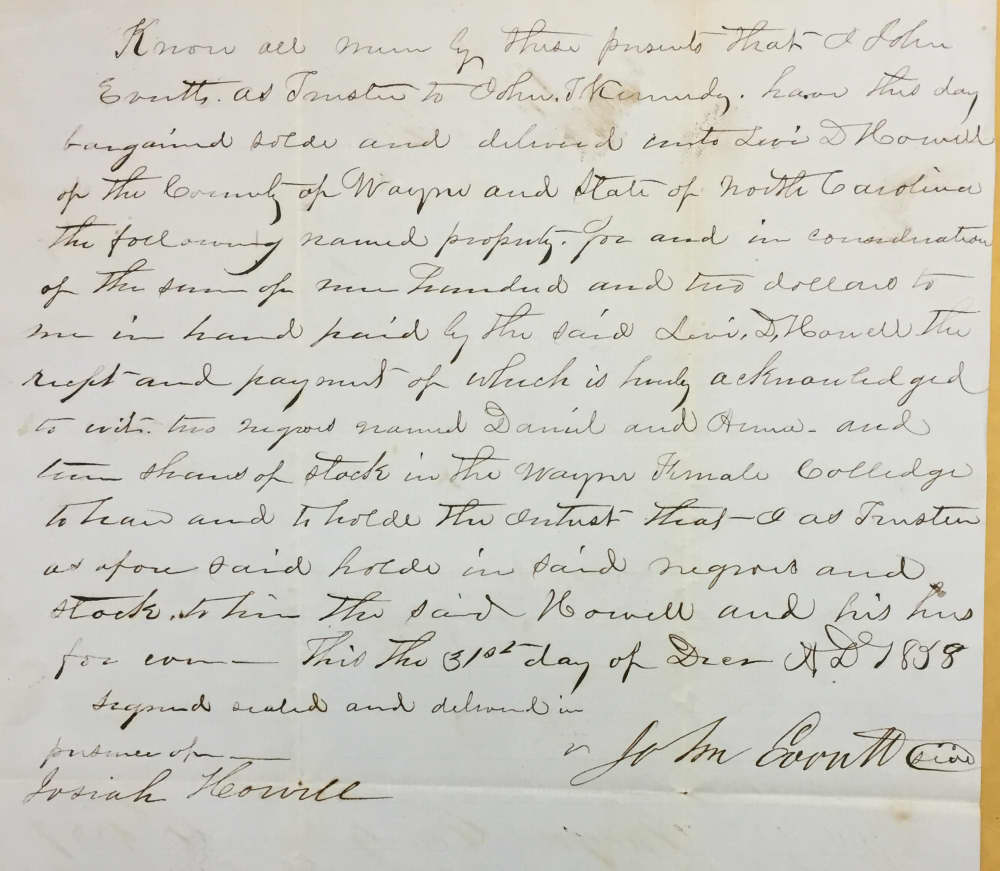 Know all mum by these presents that I John
Evritts. as Trustee to John. T Kennedy. have this day
bargained solde and delivered unto Levi D Howell
of the County of Wayne and State of North Carolina
the following named property. for and in consideration
of the sum of nine hundred and two dollars to
me in hand paid by the said Levi. D, Howell the
reciept and payment of which is hereby acknowledged
to wit. two negroes named Daniel and Anna - and
shares of stock in the Wayne Female Colledge
to have and to holde the interest that I as Trustee
as afore said holde in said negroes and
stock. to him the said Howell and his heirs
for ever This the 31st day of Decr AD 1858
signed sealed and delivered in
presence of
John Evritt seal
Josiah Howell